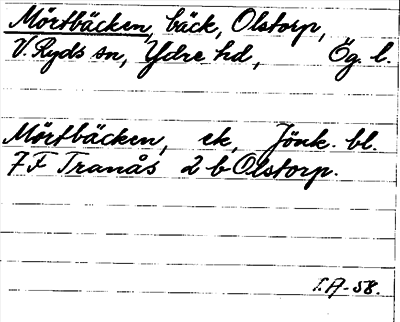 Mörtbäcken, bäck, Olstorp,
V. Ryds sn, Ydre hd, Ög. l.
Mörtbäcken, ek, Jönk. bl.
7 F Tranås 2 b Olstorp.
I.A-58.